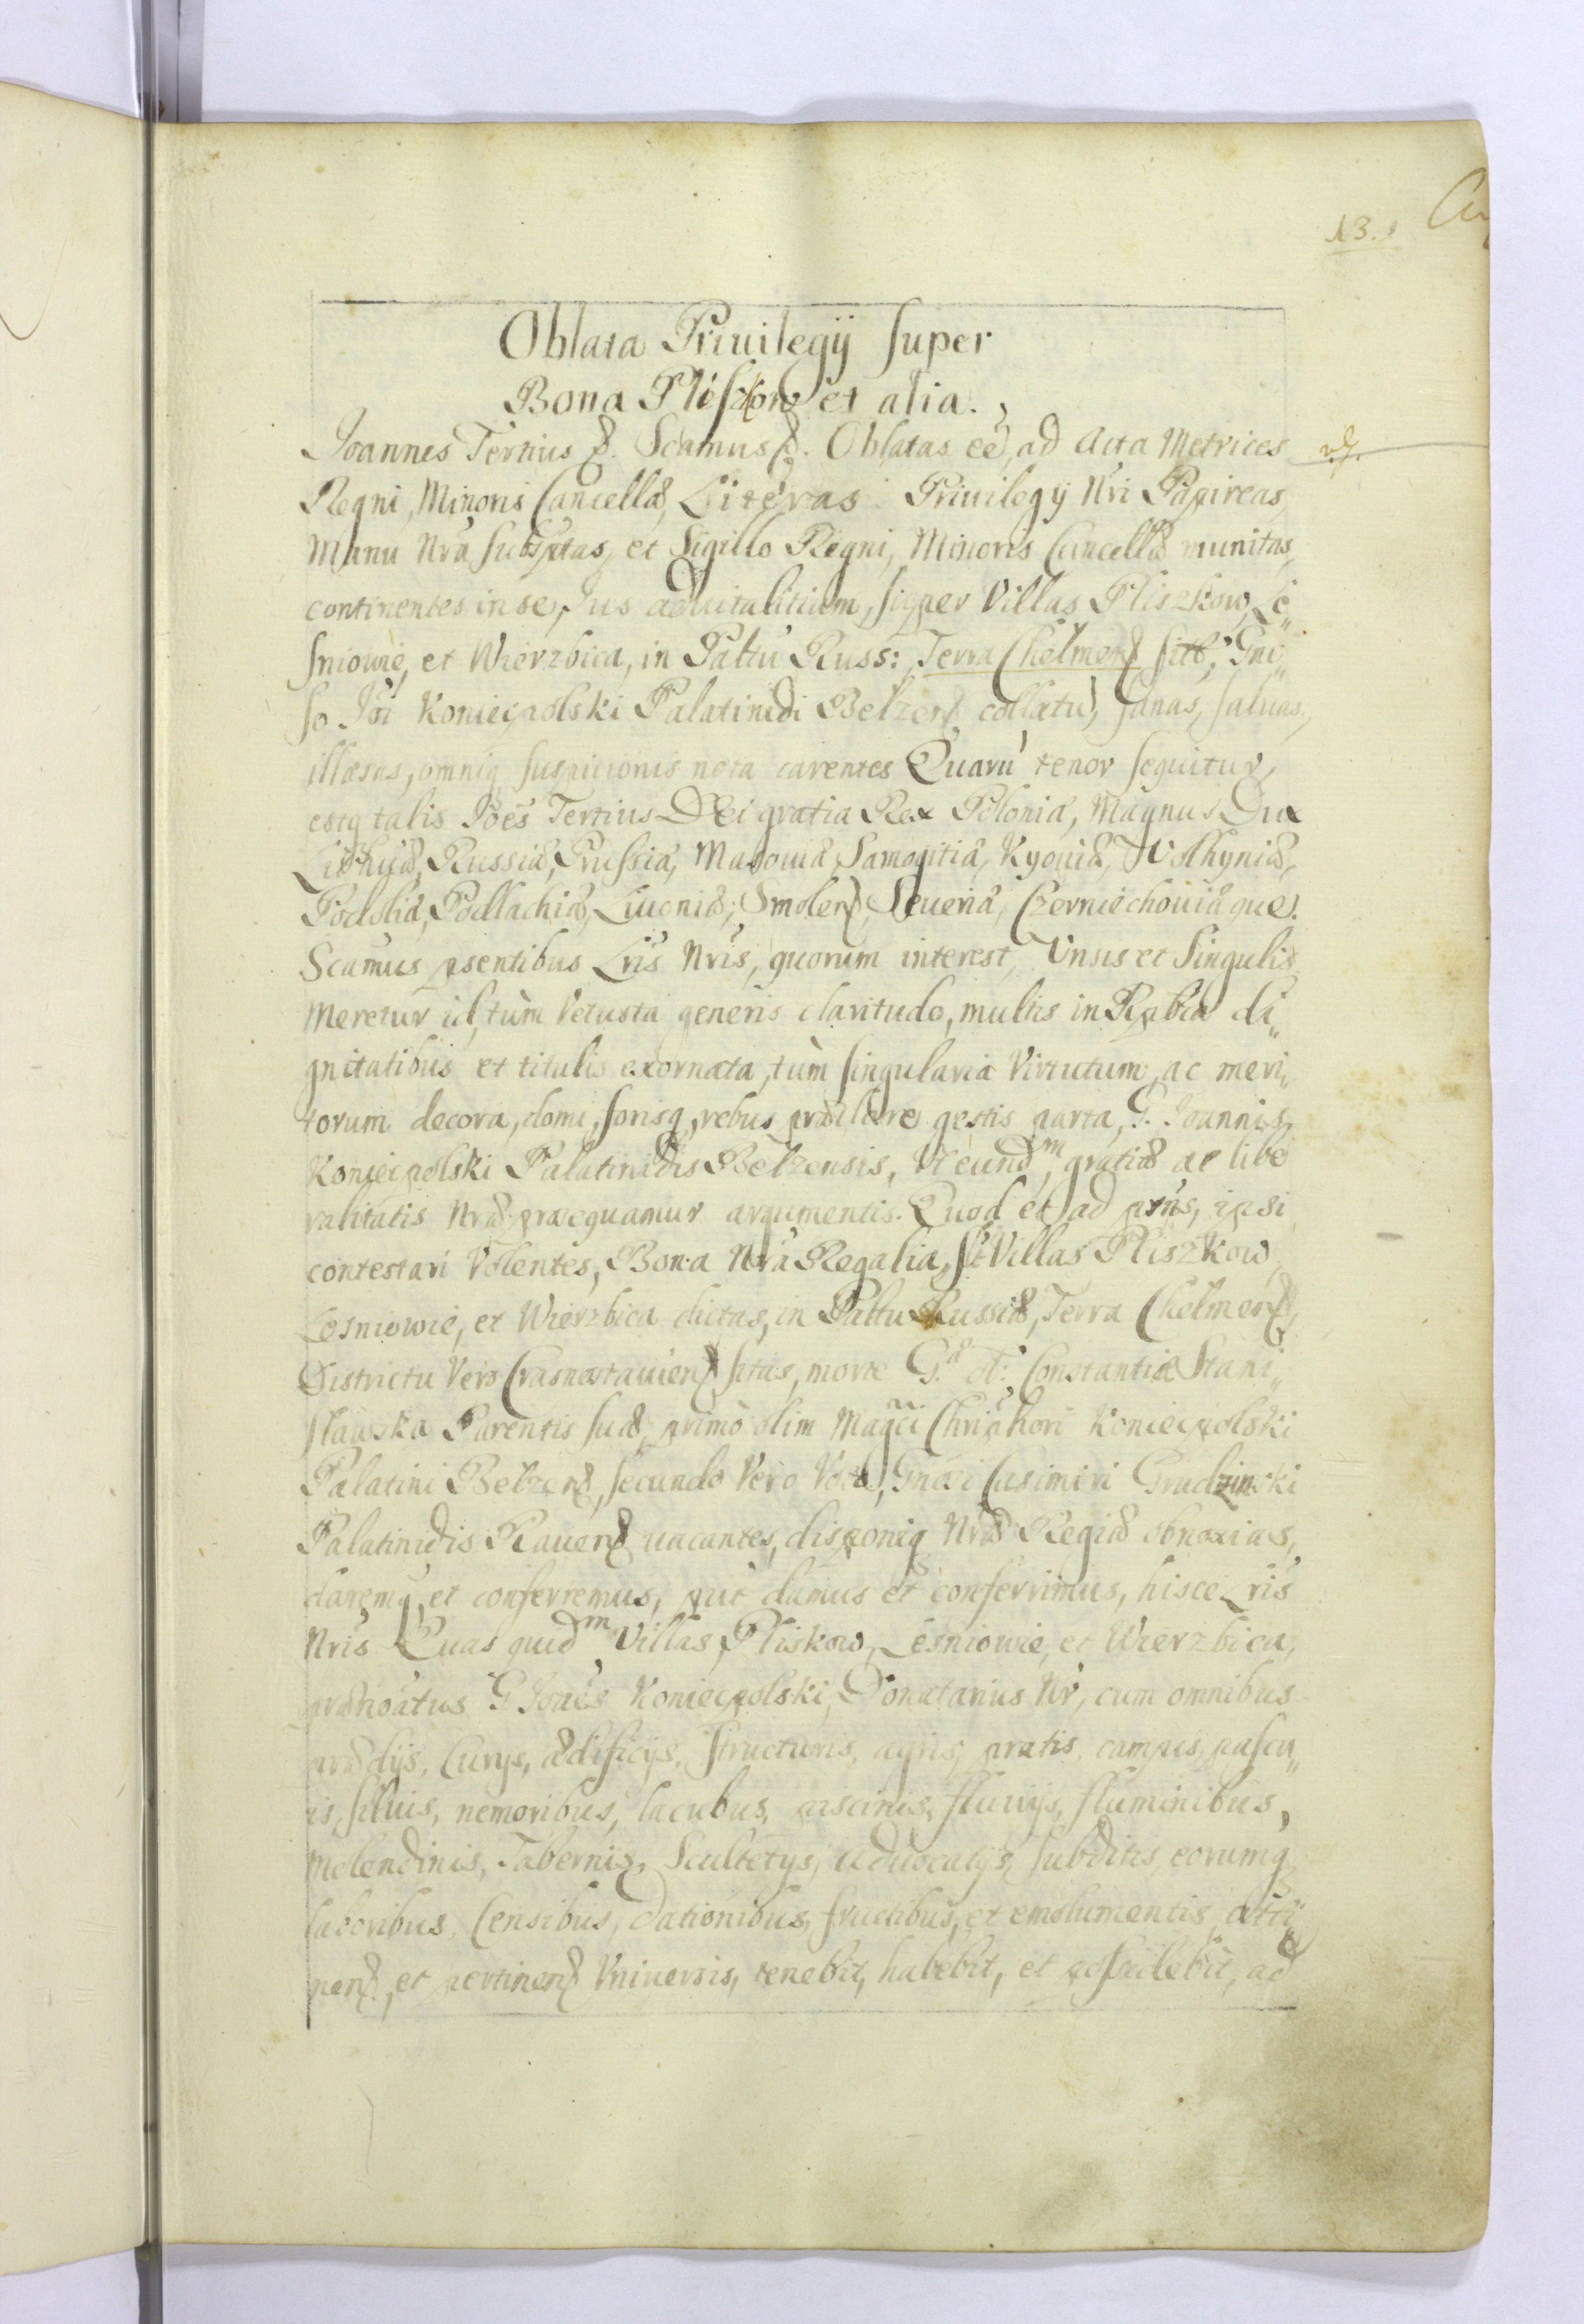 13.
Oblata Priuilegij super
Bona Pliszkow et alia.
Joannes Tertius &. Scamus &. Oblatas eē, ad Acta Metrices
Regni, Minoris Cancellæ, Literas Priuilegij Nri Papireas,
Manu Nrā subsptas, et Sigillo Regni, Minoris Cancellæ munitas,
continentes in se, Jus aduitalitium, super Villas Pliszkow, Le„
sniowie, et Wierzbica, in Paltu Russ: Terra Chelmen sitt, Gn̄i„
so Joi Koniecpolski Palatinidi Belzen collatū, sanas, saluas,
illæsas, omniq suspicionis nota carentes Quarū tenor sequitur,
estq talis Joēs Tertius Dei gratia Rex Poloniæ, Magnus Dux
Lithuæ, Russiæ, Prussiæ, Masouiæ, Samogitiæ, Kyouiæ, Volhyniæ,
Podoliæ, Podlachiæ, Liuoniæ, Smolen, Seueriæ, Czerniechouiæque.
Scamus psentibus Lris Nris, quorum interest, Vnsis et Singulis
Meretur id, tùm Vetusta generis claritudo, multis in Rpbca di„
gnitatibus et titulis exornata, tùm singularia Virtutum, ac meri„
torum decora, domi, forisq, rebus præclare gestis parta, G. Joannis
Koniecpolski Palatinidis Belzensis, Vt eundm, gratiæ ac libe
ralitatis Nræ præequamur argumentis. Quod et ad prn̄s, ipsi
contestari Volentes, Bona Nra Regalia, st Villas Pliszkow,
Lesniowie, et Wierzbica dictas, in Paltu Russiæ, Terra Chelmen,
Districtu Vero Crasnostauien sitas, morte G. ol: Constantiæ Stani„
sławska Parentis suæ, primò olim Magci Chriphori Koniecpolski
Palatini Belzen, secundo Vero Voto, Gnosi Casimiri Grudzinski
Palatinidis Rauen uacantes, disponiq Nræ Regiæ obnoxias,
daremq, et conferremus, put damus et conferrimus, hisce Lris
Nris Quas quidm Villas, Pliskow, Lesniowie, et Wierzbica,
G Joaēs Koniecpolski, Donatarius Nr, cum omnibus
prædijs, Curijs, ædificijs, structuris, agris, pratis, campis, pascu„
is, siluis, nemoribus, lacubus, piscinis, fluuijs, fluminibus,
Molendinis, Tabernis, Scultetijs, aduocatijs, subditis, eorumq
laboribus, Censibus, dationibus, fructibus, et emolumentis, atti„
nen, et pertinen Vniuersis, tenebit, habebit, et possidebit, ad